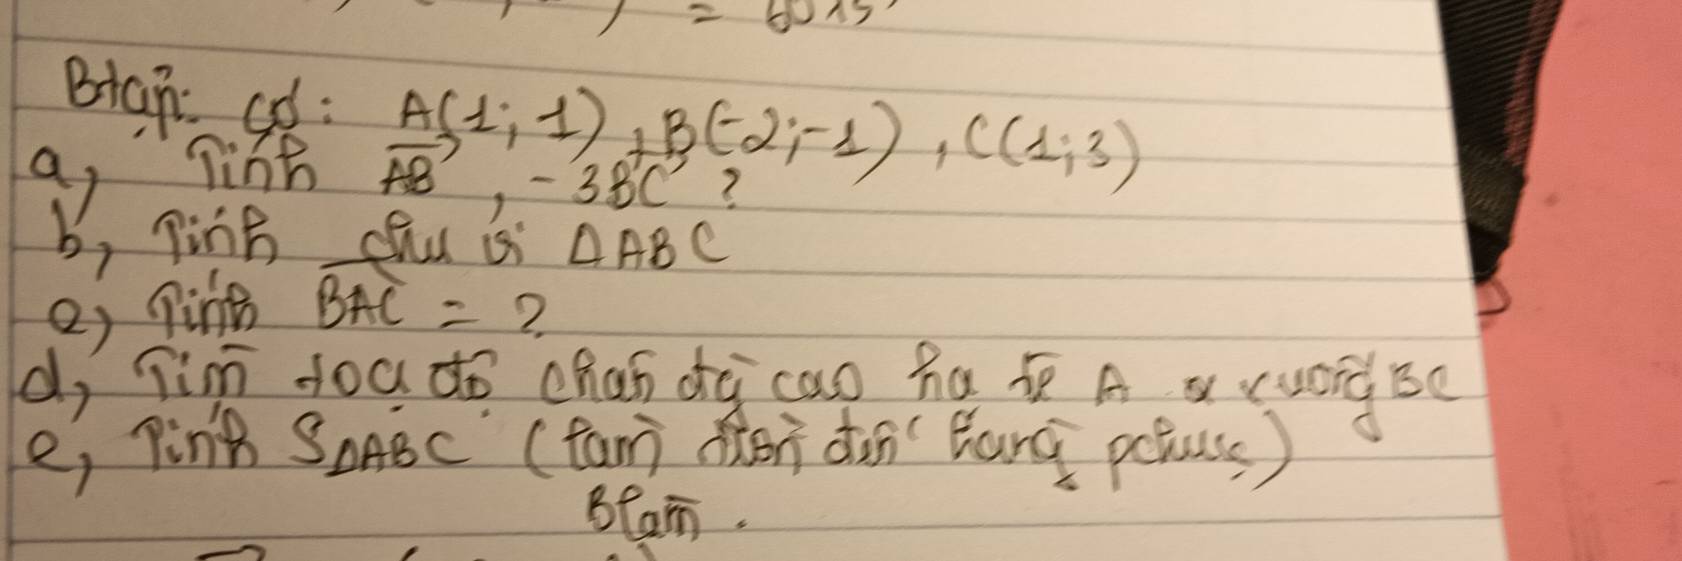 = 60°15'
Btập: Có: A(1; 1), B(-2; -1), C(1; 3)
a, Tính AB, -3BC ?
b, Tính chu vi ΔABC
c) Tính BAC = ?
d, Tìm toạ độ chân đg cao hạ từ A xuống BC
e, Tính SΔABC (làm tròn đến hàng phchục)
Blàm.